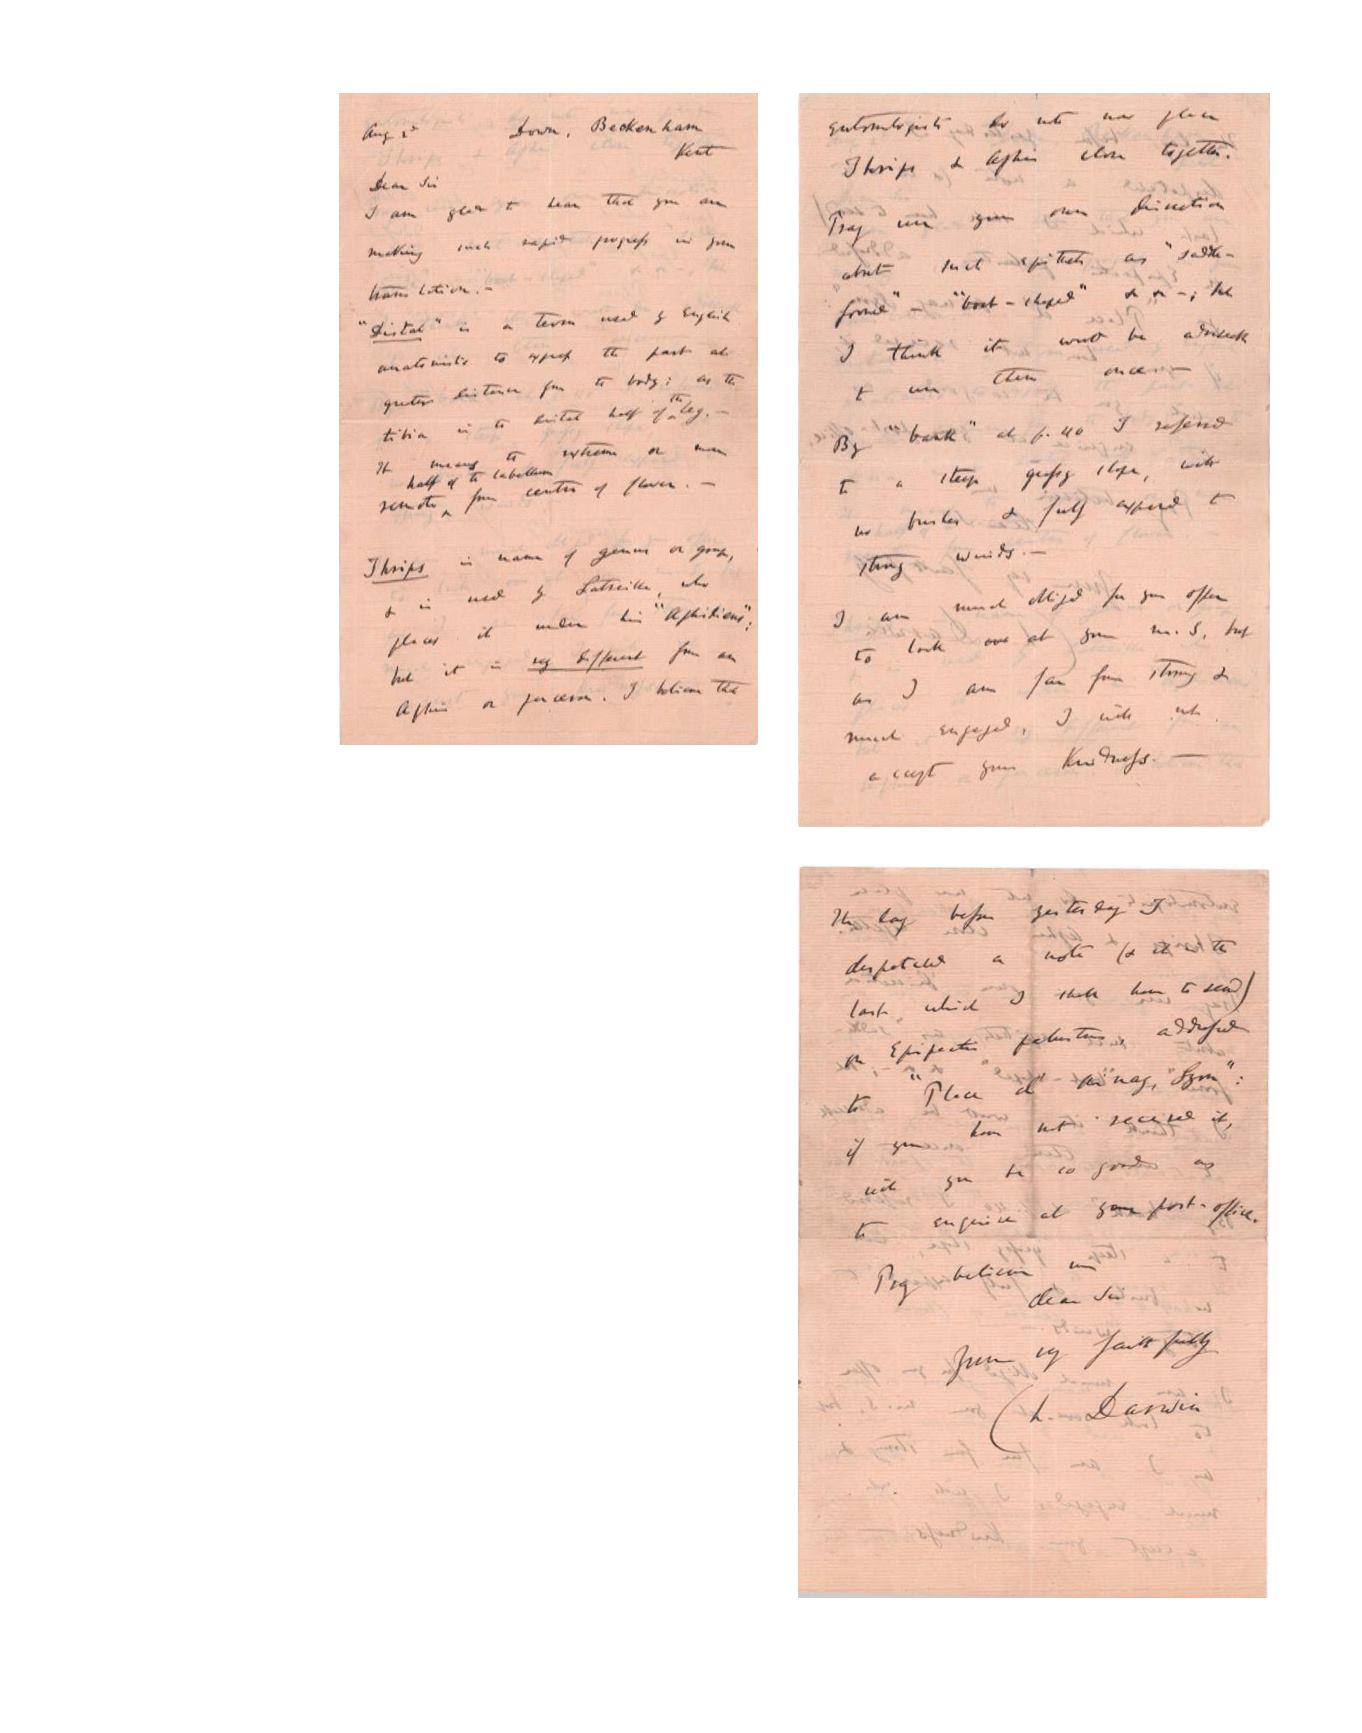 Aug 2d Down, Beckenham
Kent
Dear Sir
I am glad to hear that you are
making such rapid progress in your
translation.—
"Distal" is a term used by English
anatomists to express the part at
greater distance from the body: as the
tibia is the distal half of the leg.—
It means the extreme or more
half of the labellum
remote ^ from centre of flower.—
Thrips is name of genus or group,
& is used by Latreille, who
places it under his "Aphidiens";
but it is very different from an
Aphis or puceron. I believe that
entomologists do not now place
Thrips & Aphis close together.
Pray use your own discretion
about such epithets as "saddle-
formed" — "boat-shaped" & &—; but
I think it wd be advisable
to use them once—
By "bank" at p. 40 I referred
to a steep grassy slope, with
no bushes & fully exposed to
strong winds.—
I am much obliged for your offer
to look over at your M.S, but
as I am far from strong &
much engaged, I will not
accept your kindness.—
The day before yesterday I
despatched a note (& it is the
last, which I shall have to send)
on Epipactis palustris, addressed
to "Place d' Ainay, Lyon":
if you have not received it,
will you be so good as
to enquire at your post-office.
Pray believe me
dear Sir
Yours very faithfully
Ch. Darwin